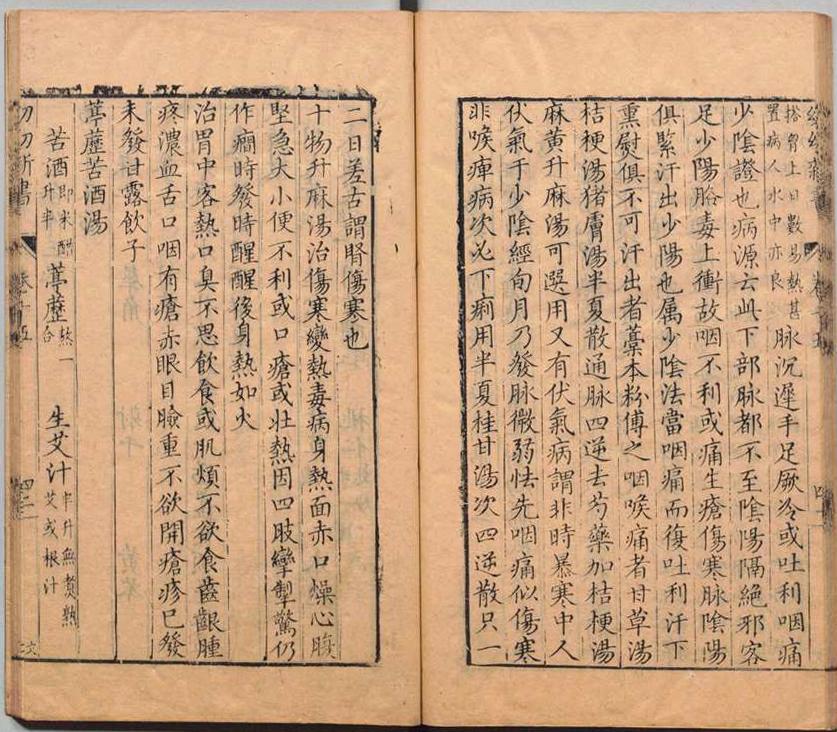 搭胷上日數易熱甚
置病人水中亦良
脉沉遲手足厥冷或吐利咽痛
少陰證也病源云此下部脉都不至陰陽隔絶邪客
足少陽胳毒上衝故咽不利或痛生瘡傷寒脉陰陽
俱緊汗出少陽也属少陰法當咽痛而復吐利汗下
熏熨俱不可汗出者藁本粉傅之咽喉痛者甘草湯
桔梗湯猪膚湯半夏散通脉四逆去芍藥加桔梗湯
麻黄升麻湯可選用又有伏氣病謂非時暴寒中人
伏氣于少陰經旬月乃發脉微弱怯先咽痛似傷寒
非喉痺病次必下痢用半夏桂甘湯次四逆散只一
二日差古謂腎傷寒也
十物升麻湯治傷寒變熱毒病身熱面赤口燥心腹
堅急大小便不利或口瘡或壯熱因四肢攣掣驚仍
作癎時發時醒醒後身熱如火
治胃中客熱口臭不思飲食或肌煩不欲食齒齦腫
疼濃血舌口咽有瘡赤眼目瞼重不欲開瘡疹已發
未發甘露飲子
葶藶苦酒湯
苦酒即米醋升半 葶藶熬一合 生艾汁半升無煑熟艾或根汁
幼幼新書
卷十五
四二